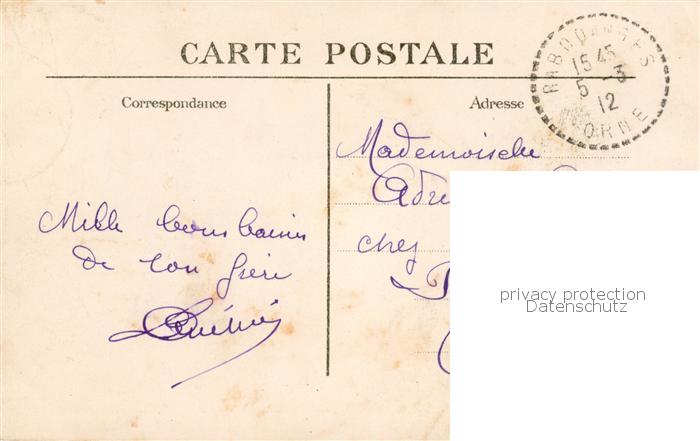 CARTE POSTALE
RABODANGES
15 45
5 - 3
12
ORNE
Correspondance
Adresse
Mademoiselle
chez
Mille bons baisers
de ton frère
privacy protection
Datenschutz